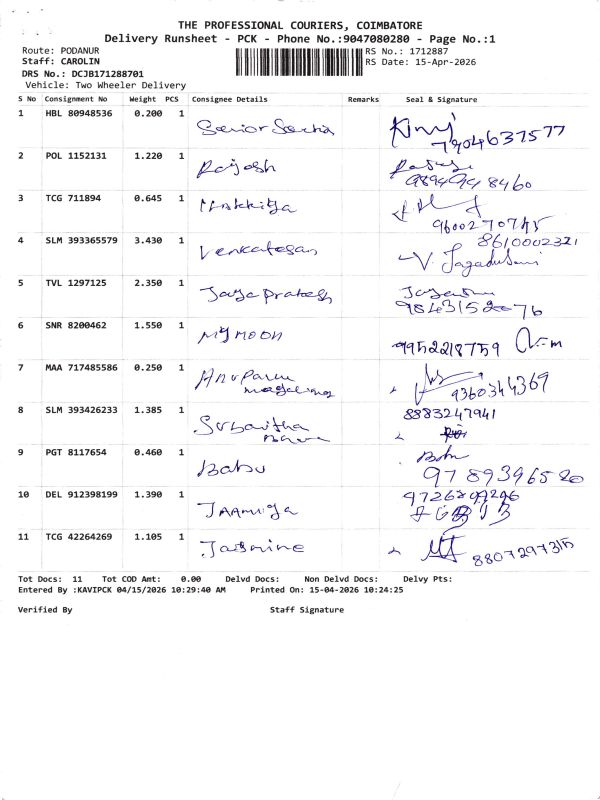 THE PROFESSIONAL COURIERS, COIMBATORE
Delivery Runsheet - PCK - Phone No.:9047080280 - Page No.:1
Route: PODANUR RS No.: 1712887
Staff: CAROLIN RS Date: 15-Apr-2026
DRS No.: DCJB171288701
Vehicle: Two Wheeler Delivery
S No Consignment No Weight PCS Consignee Details Remarks Seal & Signature
1 HBL 80948536 0.200 1 Senior
7904637577
2 POL 1152131 1.220 1 Rajesh
9894948460
3 TCG 711894 0.645 1
9600270745
4 SLM 393365579 3.430 1 Venkatesan 8610002321
V. Jagadeesani
5 TVL 1297125 2.350 1 Jaya prakash
9843152076
6 SNR 8200462 1.550 1 Mymoon 9952218759
7 MAA 717485586 0.250 1 Anuparu
9360344369
8 SLM 393426233 1.385 1 8883247941
9 PGT 8117654 0.460 1 Babu Babu
9789396520
10 DEL 912398199 1.390 1
11 TCG 42264269 1.105 1 Jasmine 8807297315
Tot Docs: 11 Tot COD Amt: 0.00 Delvd Docs: Non Delvd Docs: Delvy Pts:
Entered By :KAVIPCK 04/15/2026 10:29:40 AM Printed On: 15-04-2026 10:24:25
Verified By Staff Signature